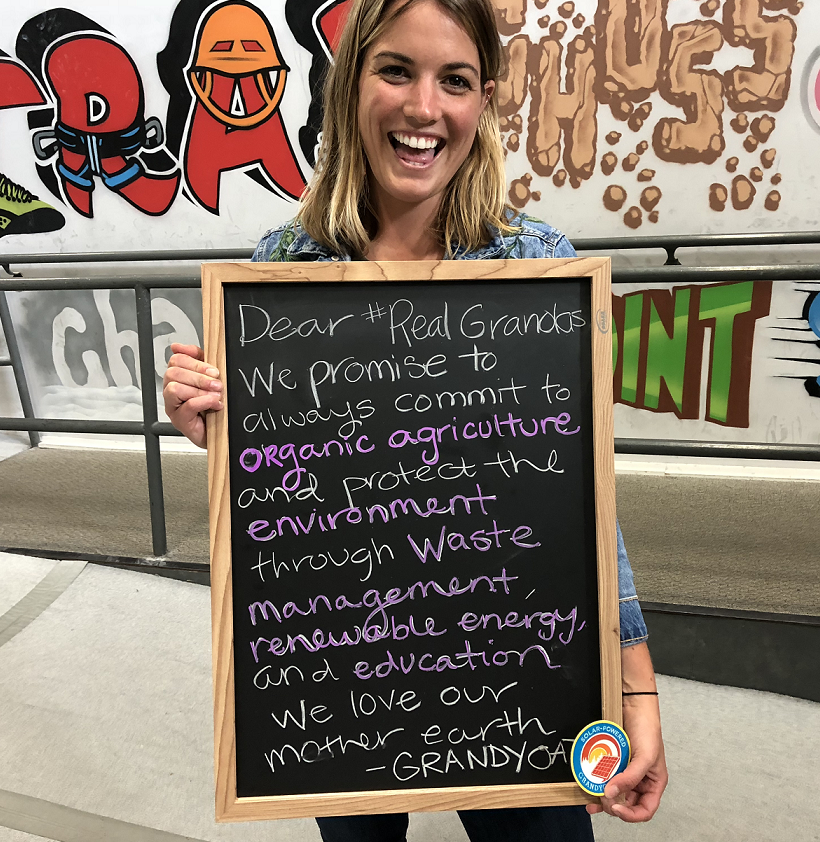 TRA
PHUSS
Cha
OINT
Dear #Real Grandos
We promise to
always commit to
ORganic agriculture
and protect the
environment
through Waste
management,
renewable energy,
and education
We love our
mother earth
-GRANDYOAT
SOLAR-POWERED
GRANDY